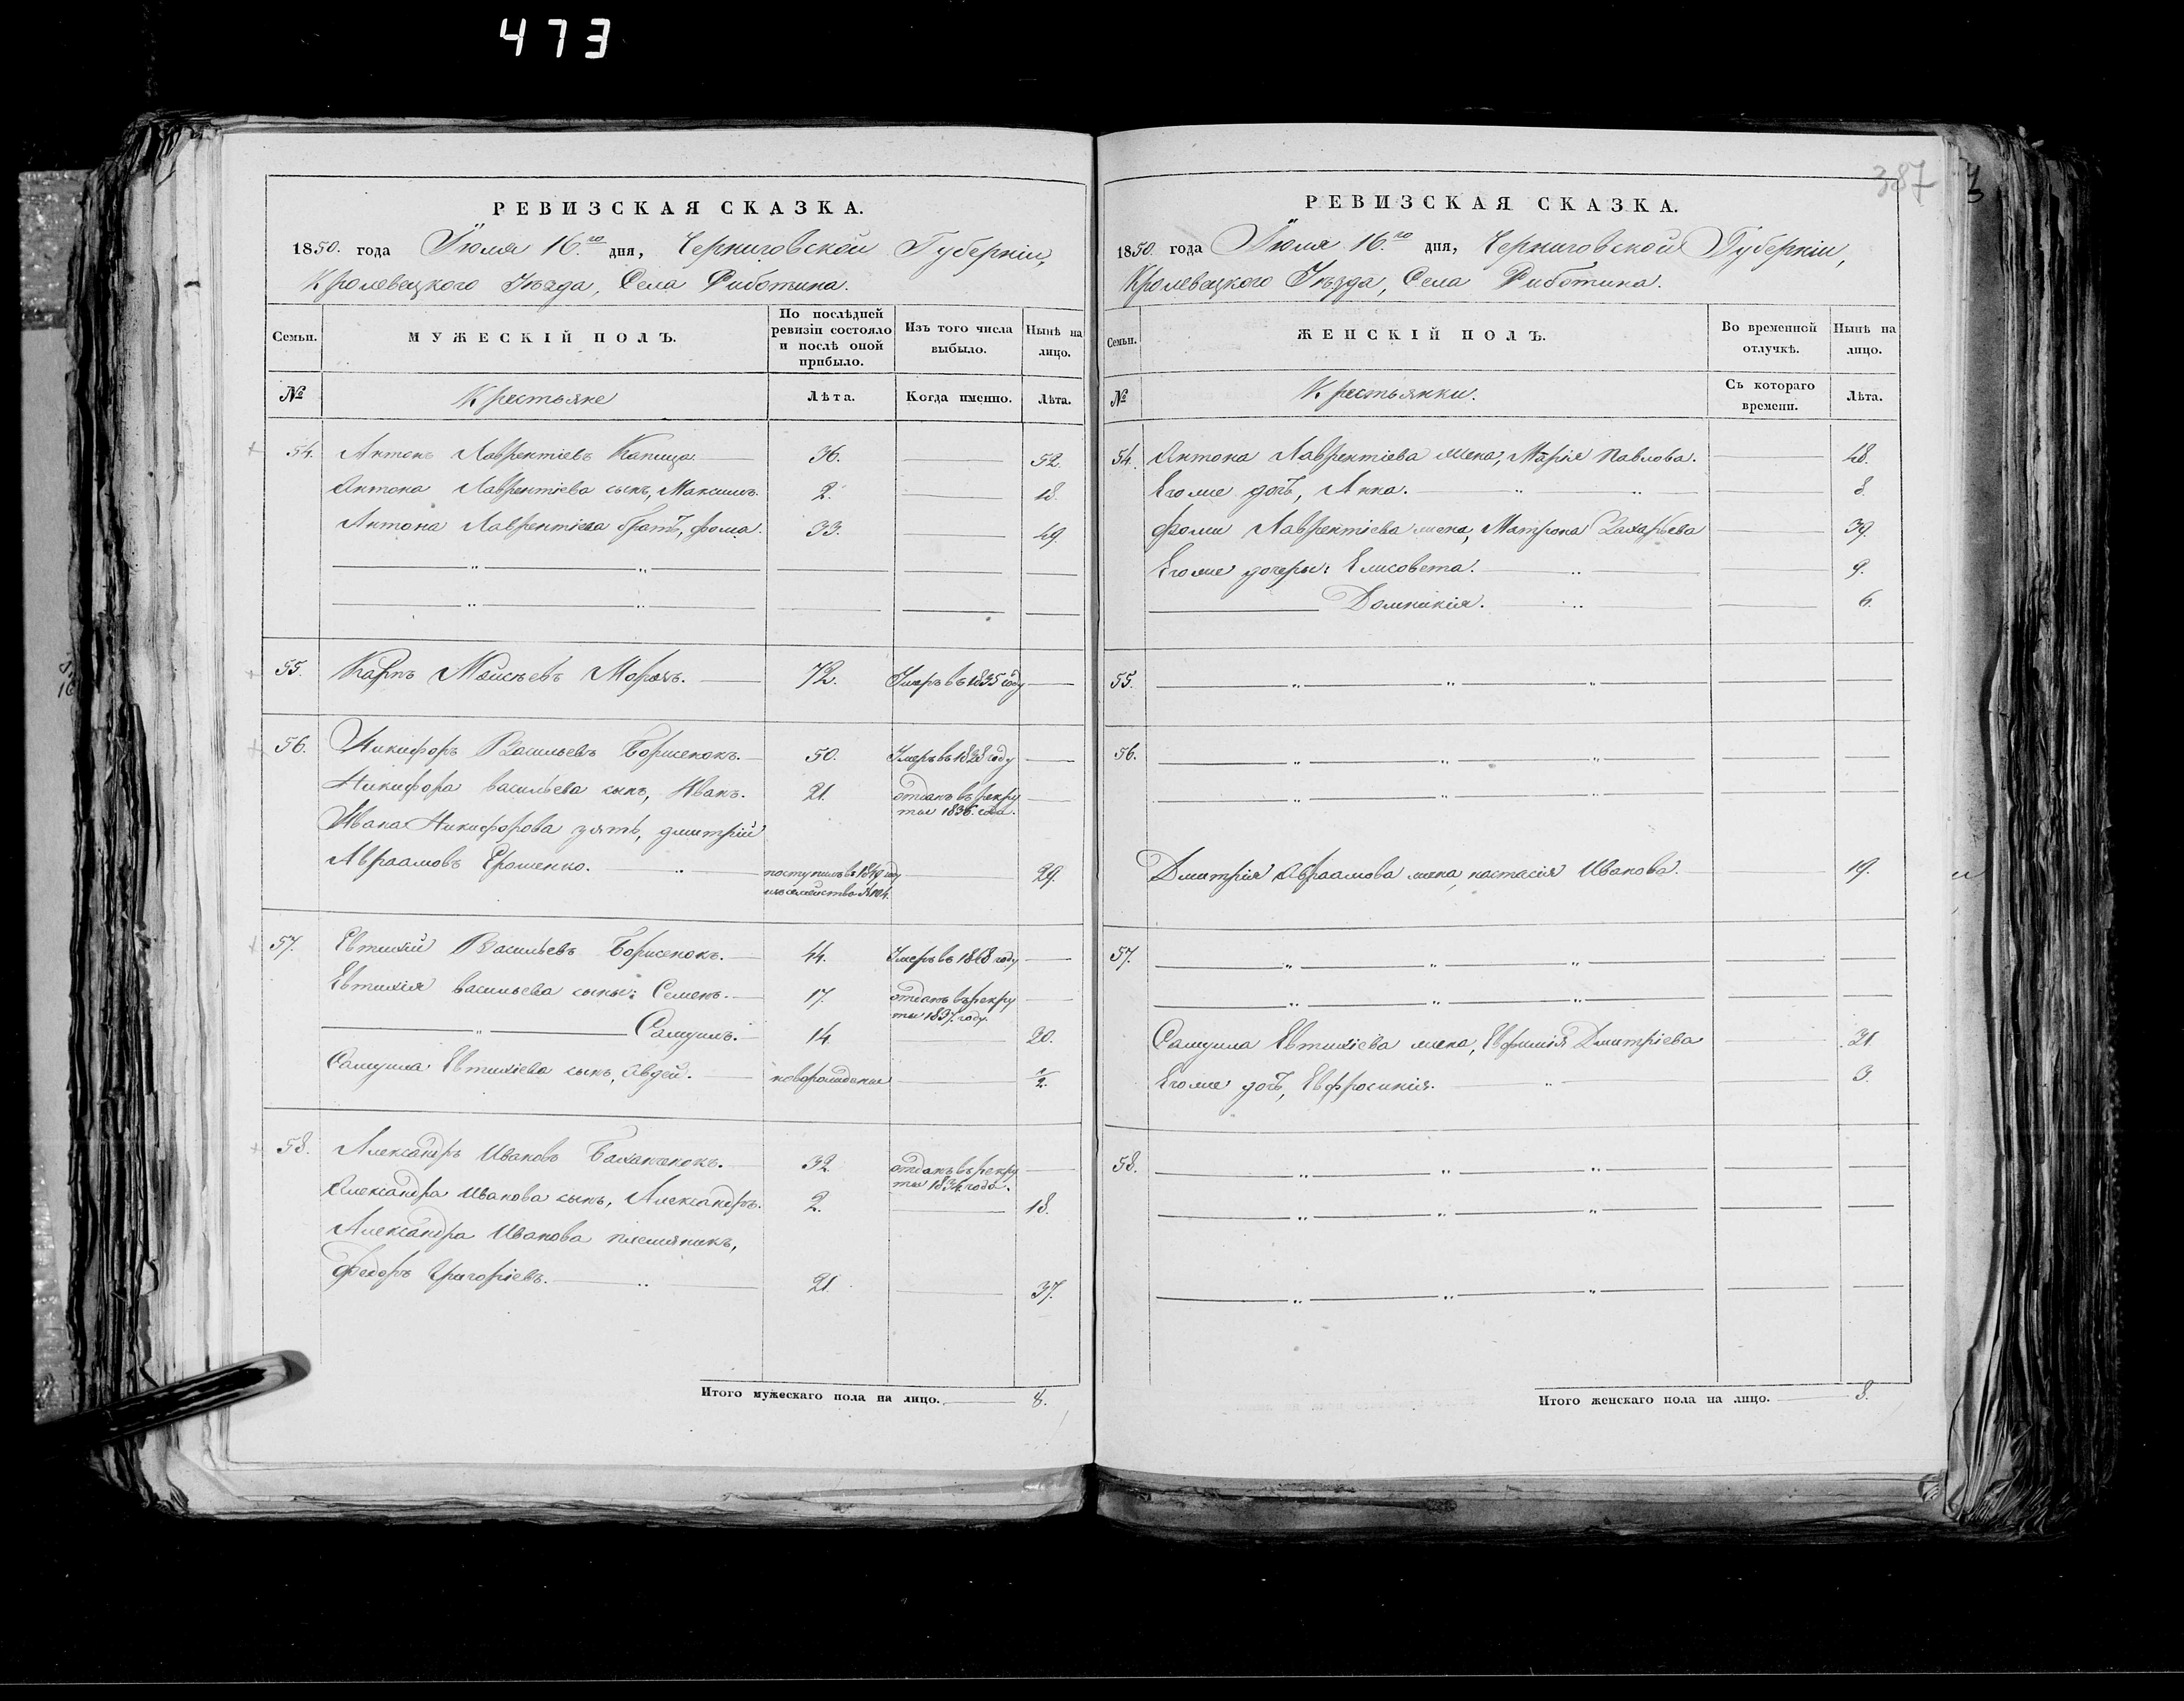 473
387
РЕВИЗСКАЯ СКАЗКА.
1850. года Іюля 16.го дня, Черниговской Губерніи,
Кролевецкого Уѣзда, Села Риботина.
Семьи.
МУЖЕСКІЙ ПОЛЪ.
По послѣдней ревизіи состояло и послѣ оной прибыло.
Изъ того числа выбыло.
Нынѣ на лицо.
№
Крестьяне
Лѣта.
Когда именно.
Лѣта.
54. Антонъ Лаврентіевъ Капица. 36. 52.
Антона Лаврентіева сынъ, Максимъ. 2. 18.
Антона Лаврентіева братъ, Фома. 33. 49.
55. Карпъ Мойсѣевъ Морозъ. 72. Умеръ въ 1835 году
56. Никифоръ Васильевъ Борисенокъ. 50. Умеръ въ 1828 году
Никифора Васильева сынъ, Иванъ. 21. отданъ въ рекру
ты 1836. года.
Ивана Никифорова зять, Дмитрій
Авраамовъ Ерошенко. поступилъ въ 1849 году 29.
изъ семейства №104.
57. Евтихій Васильевъ Борисенокъ. 44. Умеръ въ 1848 году
Евтихія Васильева сыны: Семенъ. 17. отданъ въ рекру
ты 1837. году.
Самуилъ. 14. 30.
Самуила Евтихіева сынъ, Авдей. новорожденъ 1/2.
58. Александръ Ивановъ Баланченокъ. 32. отданъ въ рекру
ты 1834 года.
Александра Иванова сынъ, Александръ. 2. 18.
Александра Иванова племяникъ,
Федоръ Григоріевъ. 21. 37.
Итого мужескаго пола на лицо. 8.
РЕВИЗСКАЯ СКАЗКА.
1850. года Іюля 16.го дня, Черниговской Губерніи,
Кролевецкого Уѣзда, Села Риботина.
Семьи.
ЖЕНСКІЙ ПОЛЪ.
Во временной отлучкѣ.
Нынѣ на лицо.
№
Крестьянки.
Съ котораго времени.
Лѣта.
54. Антона Лаврентіева жена, Марія Павлова. 48.
Егоже дочь, Анна. 8.
Фомы Лаврентіева жена, Матрона Захарьева 39.
Егоже дочеры: Елисовета. 9.
Домникія. 6.
55.
56.
Дмитрія Авраамова жена, Настасія Иванова. 19.
57.
Самуила Евтихіева жена, Евфимія Дмитріева 31.
Егоже дочь, Евфросинія. 3.
58.
Итого женскаго пола на лицо. 8.